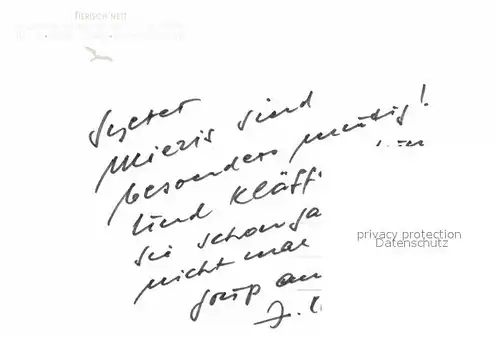 TIERISCH NETT
Sylter
Miezis sind
besonders mutig!
Und Kläff
sie schon ga
nicht mal
Gruß an
J.
privacy protection
Datenschutz